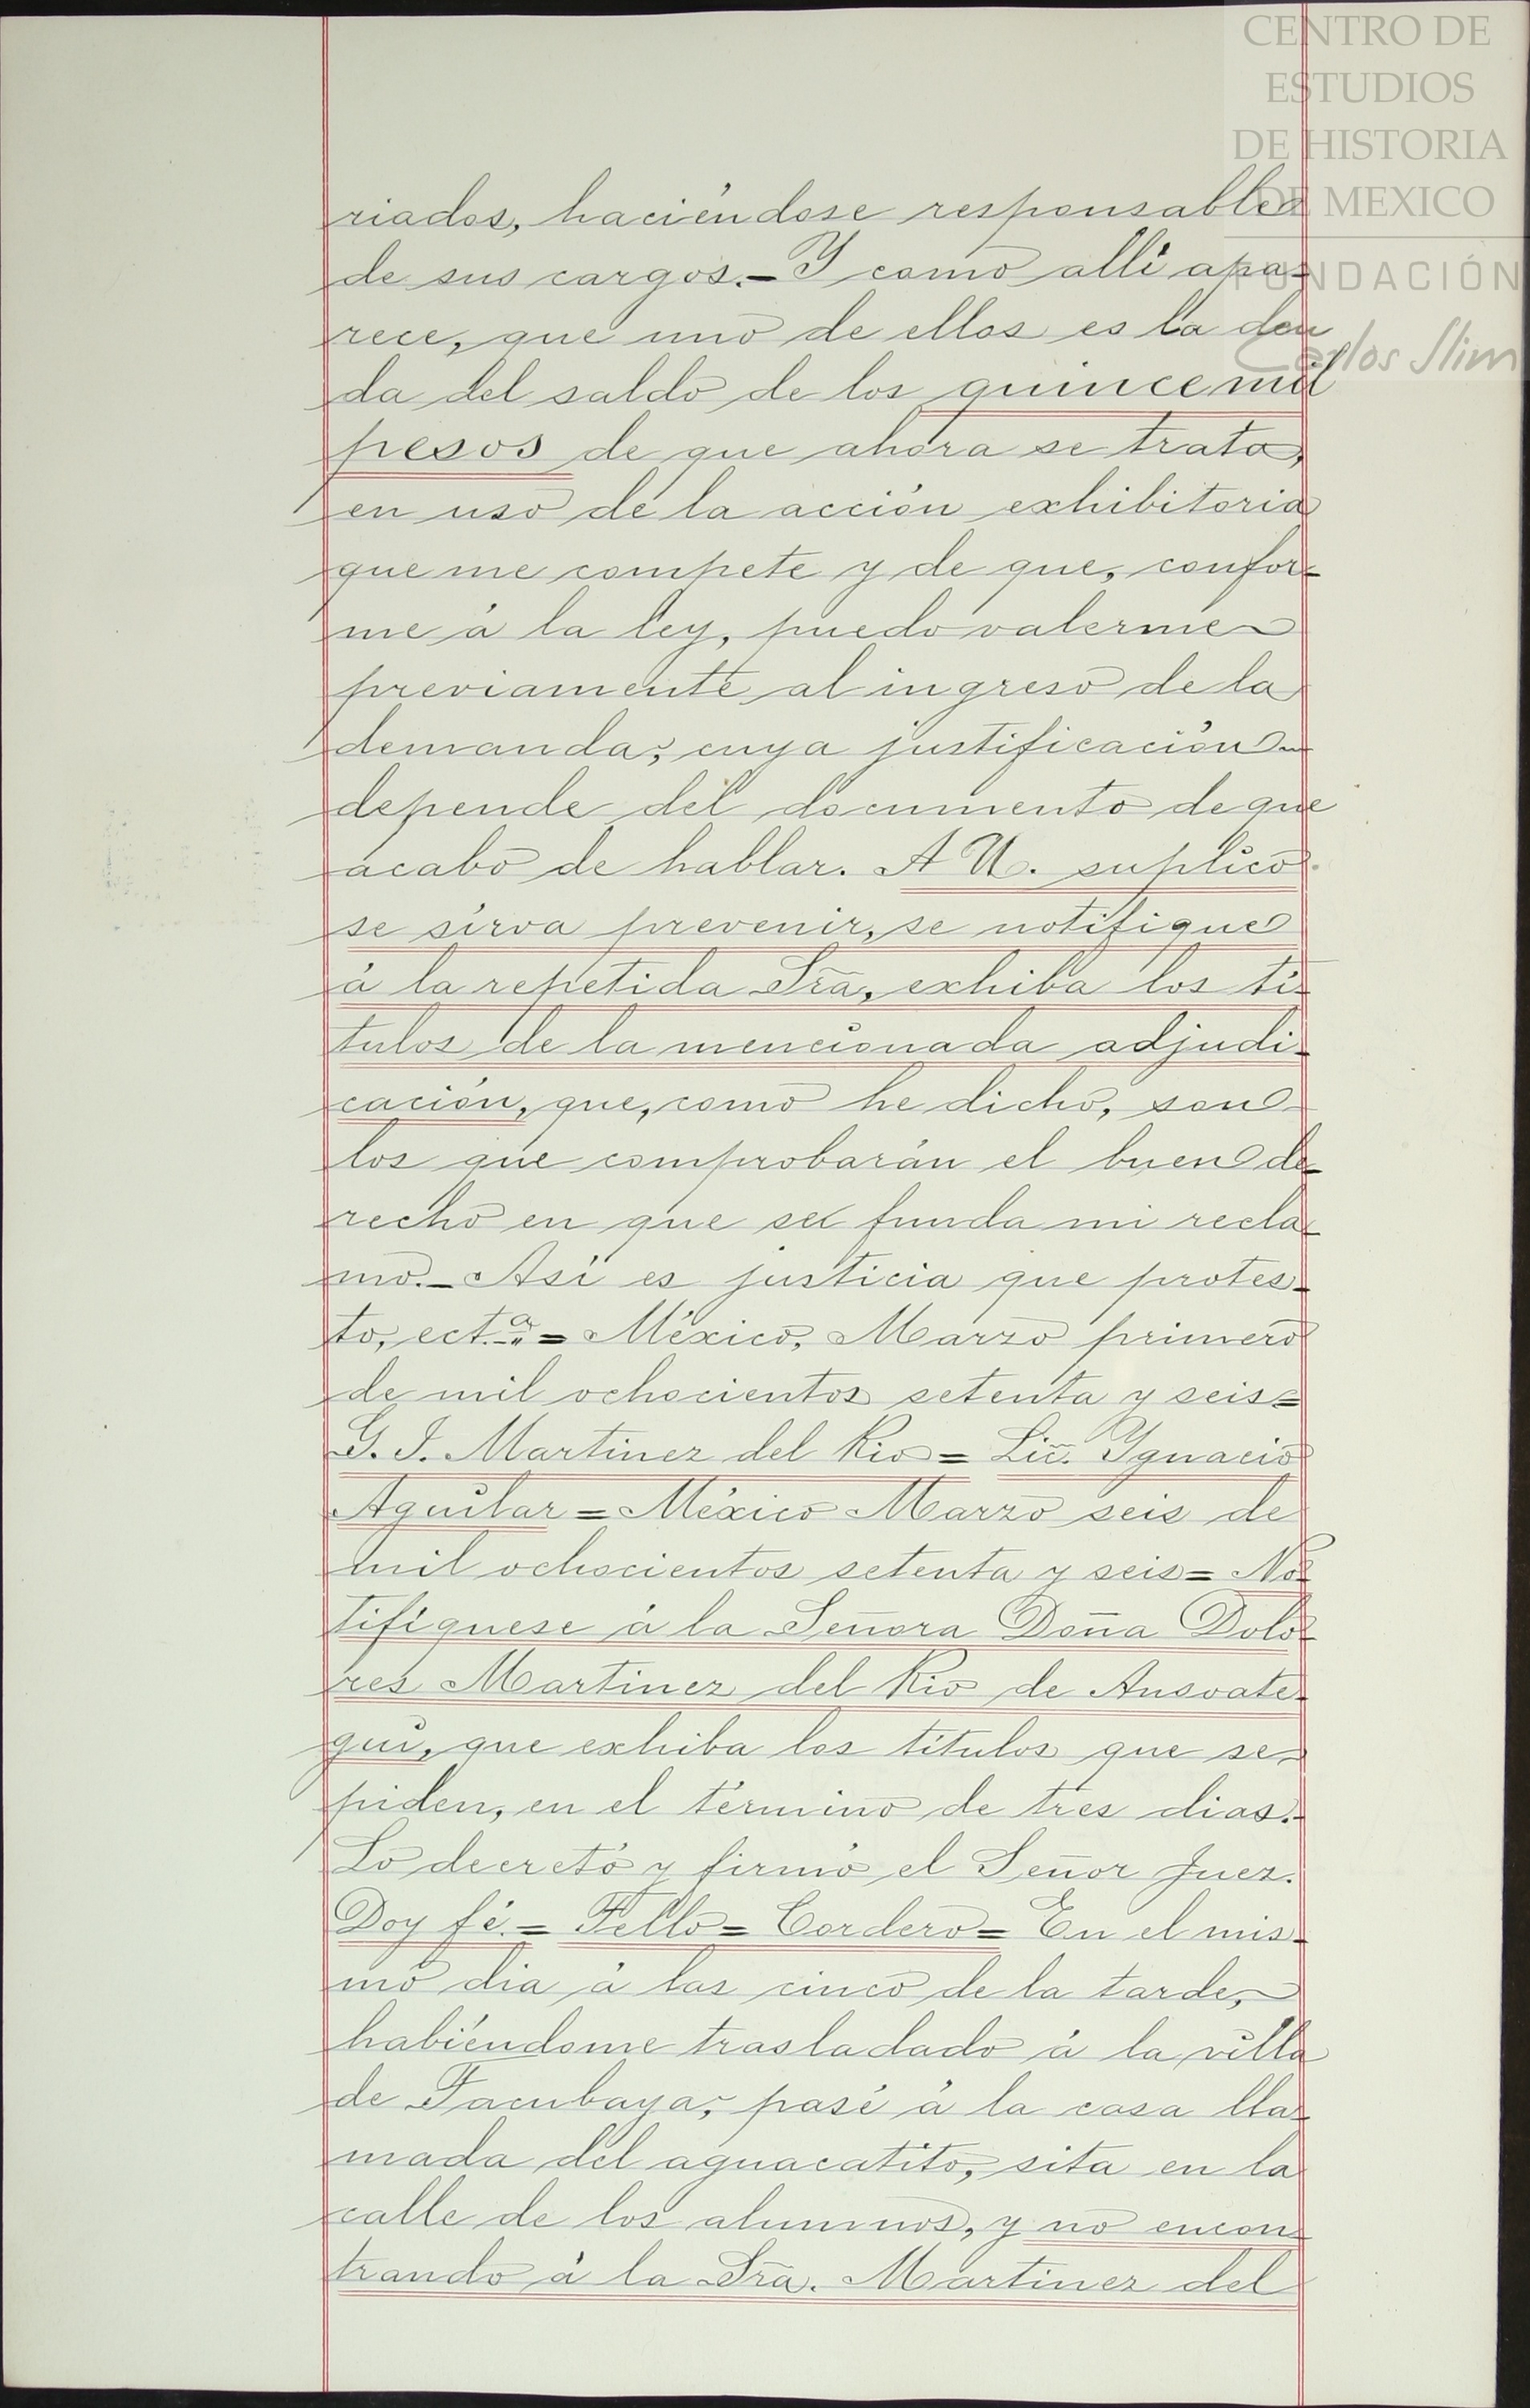 CENTRO DE
ESTUDIOS
DE HISTORIA
DE MEXICO
FUNDACIÓN
Carlos Slim
riados, haciéndose responsables
de sus cargos.= Y como allí apa-
rece, que uno de ellos es la deu
da del saldo de los quince mil
pesos de que ahora se trata,
en uso de la acción exhibitoria
que me compete y de que, confor-
me á la ley, puedo valerme
previamente al ingreso de la
demanda; cuya justificación
depende del documento de que
acabo de hablar. A U. suplico
se sirva prevenir, se notifique
á la repetida Srã, exhiba los tí-
tulos de la mencionada adjudi-
cación, que, como he dicho, son
los que comprobarán el buen de-
recho en que se funda mi recla-
mo.- Así es justicia que protes-
to, ect.ª = México, Marzo primero
de mil ochocientos setenta y seis=
G. I. Martinez del Rio = Lic̃. Ygnacio
Aguilar = México Marzo seis de
mil ochocientos setenta y seis= No-
tifíquese á la Señora Doña Dolo-
res Martinez del Rio de Ansoate-
gui, que exhiba los títulos que se
piden, en el término de tres dias.-
Lo decretó y firmó el Señor Juez.
Doy fé.= Tello = Cordero = En el mis-
mo dia á las cinco de la tarde,
habiéndome trasladado á la villa
de Tacubaya; pasé á la casa lla-
mada del aguacatito, sita en la
calle de los alumnos, y no encon-
trando á la Srã. Martinez del